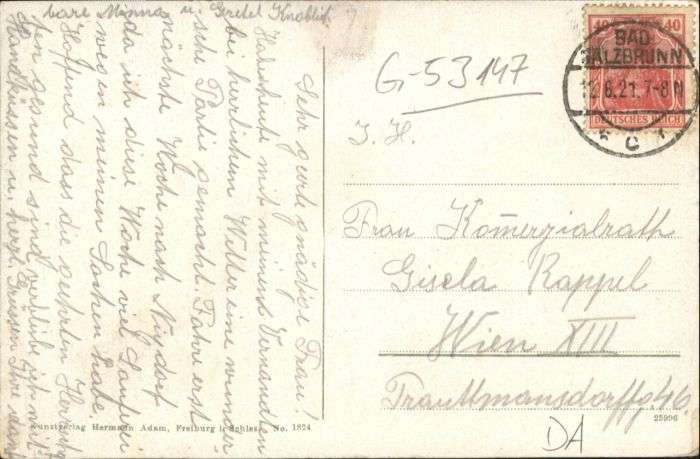 Sehr geehrte gnädige Frau!
Habe heute mit meinem Verwandten
bei herrlichem Wetter eine wunder
sche Partie gemacht. Fahre erst
nächste Woche nach
da ich diese Woche viel Lauferei
wegen meinen Sachen habe.
Hoffend dass die geehrten
ten gesund sind, verbleibe ich mit
Handküssen u. herzl. Grüssen Ihre dank
bare Minna u. Gretel
G-53147
40 40
DEUTSCHES REICH
BAD
SALZBRUNN
12.6.21. 7-8 N
* c 1
I. H.
Frau Kom̄erzialrath
Gisela Kappel
Wien XIII
Trauttmansdorffg 46
Kunstverlag Hermann Adam, Freiburg i. Schles. No. 1824
25996
DA